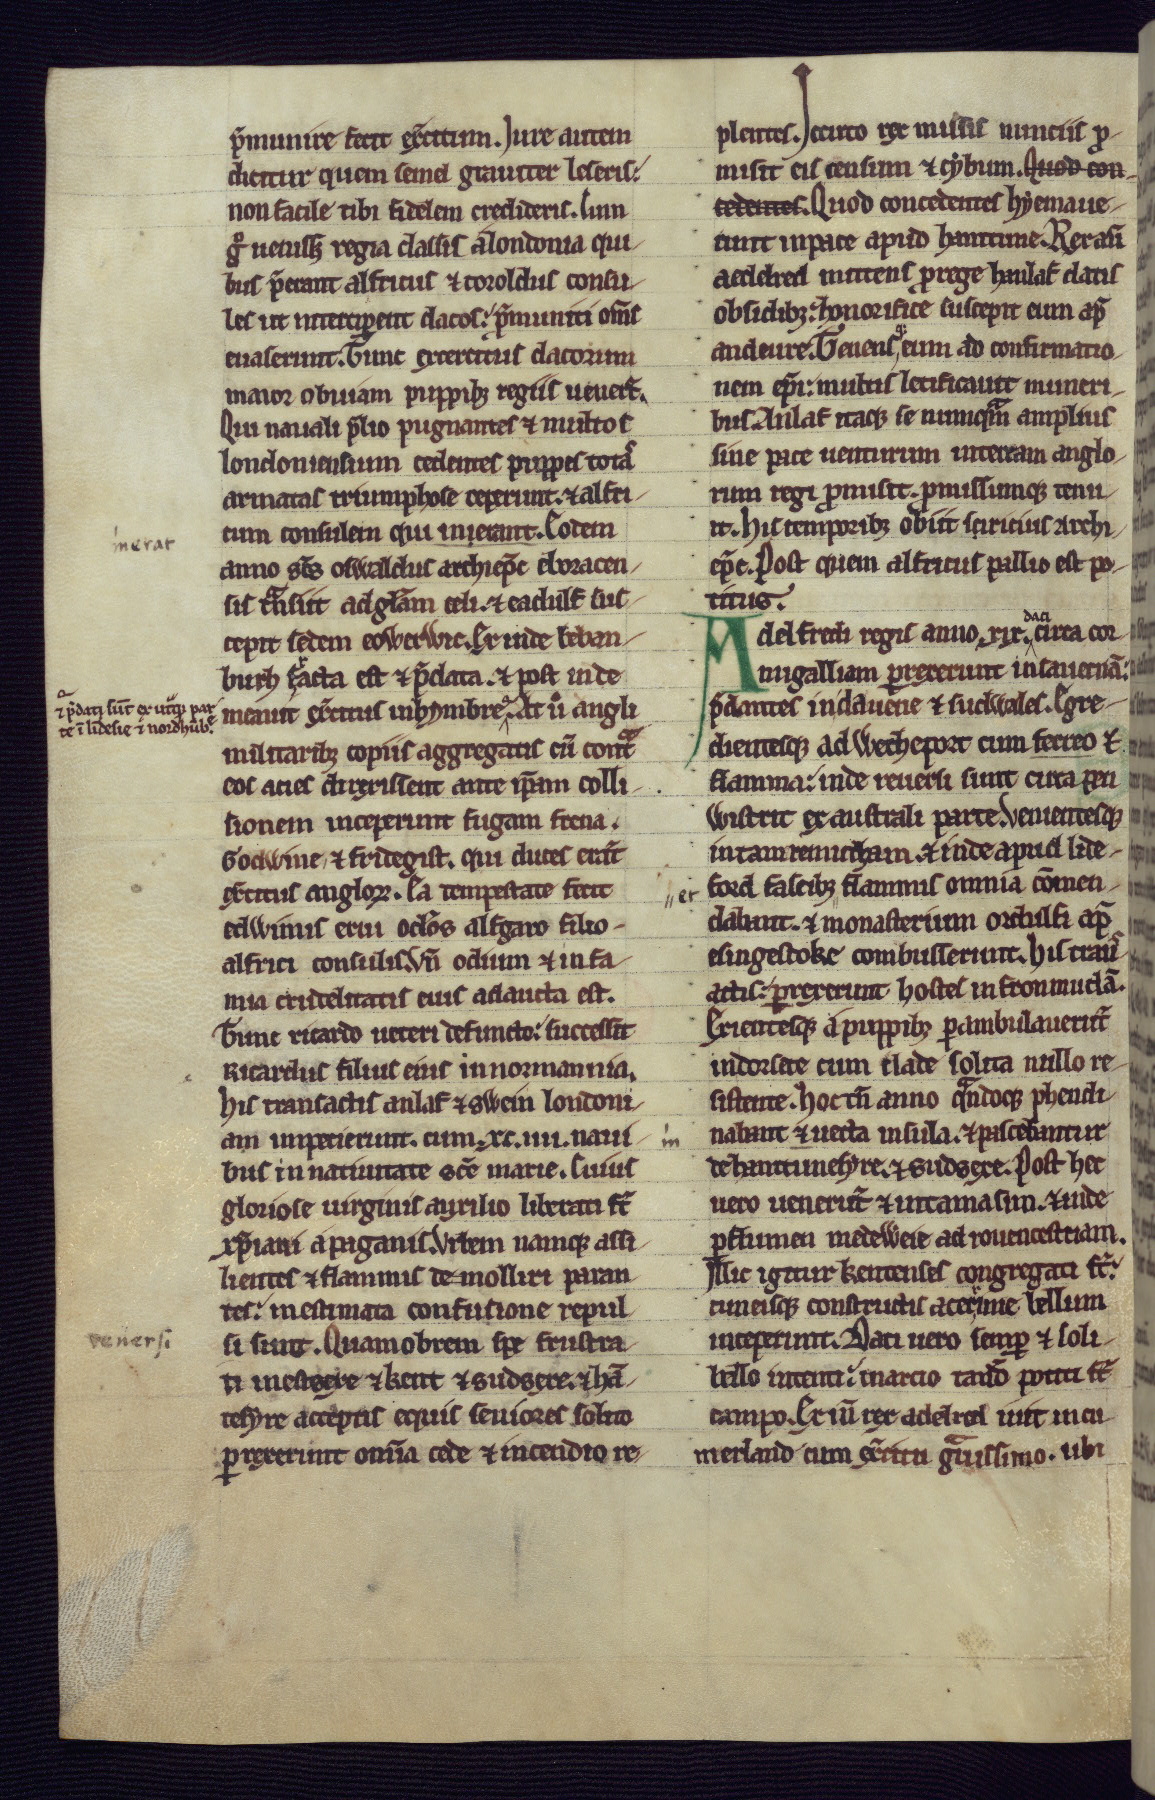 p̄munire fecit exc̄itum. Jure autem
dicitur quem semel grauiter leseris:
non facile tibi fidelem credideris. Cum
g̊ uenissꝫ regia classis a londonia qui-
bus p̄erant alfricus & toroldus consu-
les ut interciꝑent dacos: p̄muniti om̄s
euaserunt. Tunc exercitus dacorum
maior obuiam puppibꝫ regiis uener̄t.
Qui nauali p̄lio pugnantes & multos
londoniensium cedentes puppes totas
armatas triumphose ceperunt. & alfri-
cum consulem qui inierant. Eodem
anno sc̄s oswaldus archiep̄c eboracen-
sis t̄nsiit ad gl̄am celi. & eadulf̄ sus-
cepit sedem eowerwic. Ex inde beban-
burh fracta est & p̄data. & post inde
meauit exc̄itus in hymbre. At ů angli
militaribꝫ copiis aggregatis cū cont̄
eos acies direxissent ante ip̄am colli-
sionem inceperunt fugam frena.
Godwine, & fridegist. qui duces erāt
exc̄itus angloꝝ. Ea tempestate fecit
edwinus erui oc̄los alfgaro filio-
alfrici consulis. Vn̄ odium & infa-
mia crudelitatis eius adaucta est.
Tunc ricardo ueteri defuncto: successit
Ricardus filius eius in normannia.
His transactis anlaf & swein londoni-
am impetierunt. cum. xc. iiii. naui-
bus in natiuitate sc̄e marie. Cuius
gloriose uirginis auxilio liberati st̄
xp̄iani a paganis. Vrbem namqꝫ assi-
lientes & flammis demolliri paran-
tes: inestimata confusione repul-
si sunt. Quamobrem spe frustra-
ti in estsexe & kent & sudsexe. & hā-
tesyre acceptis equis seuiores solito
ꝑrexerunt omīa cede & incendio re-
inerat
& p̄dati sūt ex utͣqꝫ par-
te ī lidesie & ī nordhūb̄.
venersi
plentes. Iccirco rex missis nunciis ꝓ-
misit eis censum & cybum. Quod con-
cedentes. Quod concedentes hyemaue-
runt in pace apud hamtune. Rex aū
aedelred mittens ꝓ rege hanlaf datis
obsidibꝫ: honorifice suscepit eum ap̄
andeure. Teuens eum ad confirmatio-
nem ep̄i: multis letificauit muneri-
bus. Anlaf itaqꝫ se numqͣm amplius
sine pace uenturum in terram anglo-
rum regi ꝓmisit. ꝓmissumqꝫ tenu-
it. His temporibꝫ obiit siricius archi-
ep̄c. Post quem alfricus pallio est po-
titus.
Adelfredi regis anno. xix. daci circa cor-
nugalliam ꝑrexerunt in sauernā:
p̄dantes in dauene & sudwales. Egre-
dientesqꝫ ad wecheport cum ferreo &
flamma: inde reuersi sunt circa pen
wistrit ex australi parte. Venientesqꝫ
in tamremutham. & inde apud lide-
ford fascibꝫ flammis omnia cōmen-
dabant. & monasterium ordulfi ap̄
esingestoke combusserunt. His trans-
actis: ꝑrexerunt hostes in fronmudā.
Exientesqꝫ a puppibꝫ ꝑambulauerūt
in dorsete cum clade solita nullo re-
sistente. Hoc tn̄ anno qͣndoqꝫ phendi-
nabant & uecta insula. & pascebantur
de hamtunesyre. & sudsexe. Post hec
uero uenerūt & in tamasim. & inde
ꝑ flumen medeweie ad rouencestriam.
Illic igitur kentenses congregati st̄:
cuneisqꝫ constructis acerrime bellum
inceperunt. Daci uero semꝑ & soli
bello intenti: marcio tand̄ potiti st̄
campo. Ex iū rex adelred iuit in cu-
merland cum exc̄itu grauissimo. ubi
er
in